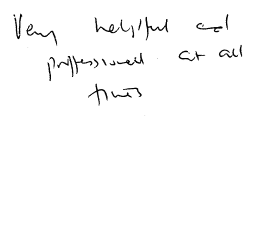 Very helpful and
proffessional at all
times